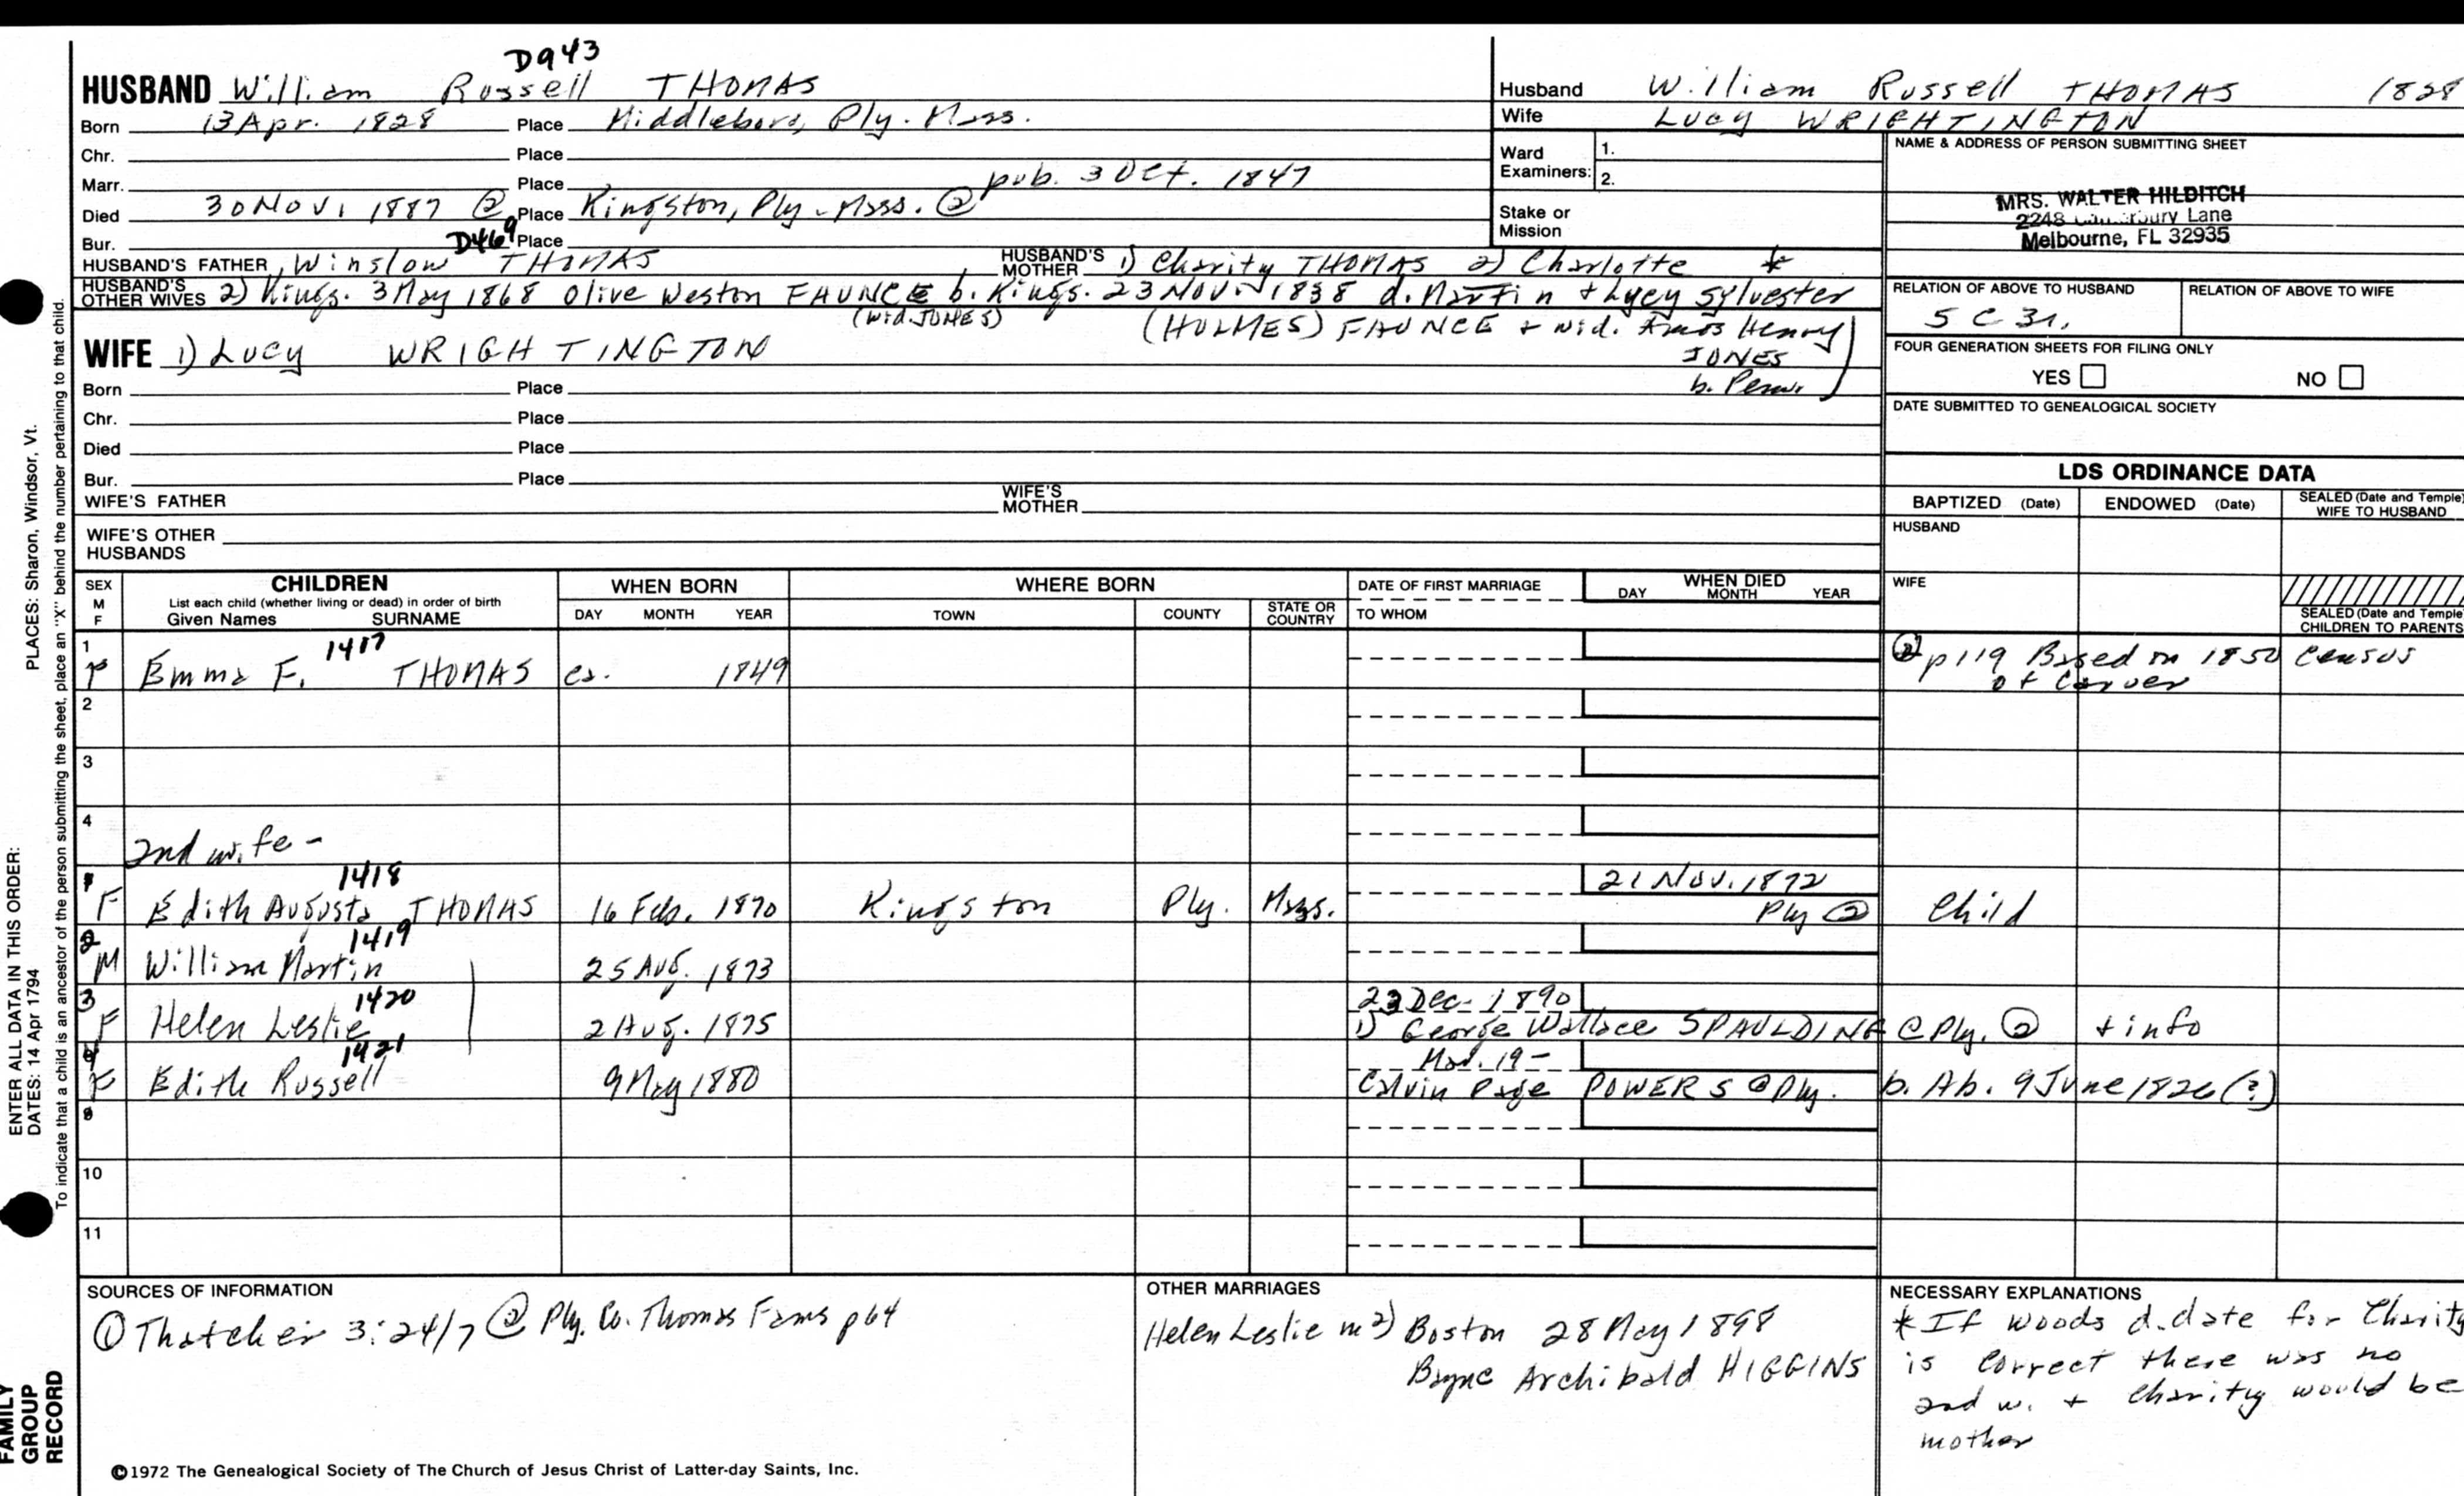 D943
HUSBAND William Russell THOMAS
Born 13 Apr. 1828 Place Middleboro, Ply. Mass.
Chr. Place
Marr. Place pub. 3 Oct. 1847
Died 30 Nov. 1887 @ Place Kingston, Ply. Mass. ②
Bur. Place
D469
HUSBAND'S FATHER Winslow THOMAS HUSBAND'S MOTHER 1) Charity THOMAS 2) Charlotte *
HUSBAND'S OTHER WIVES 2) Kings. 3 May 1868 Olive Weston FAUNCE b. Kings. 23 Nov. 1838 d. Martin + Lucy Sylvester
(wid. JONES) (HOLMES) FAUNCE + wid. Amos Henry
JONES
b. Penn.
WIFE 1) Lucy WRIGHTINGTON
Born Place
Chr. Place
Died Place
Bur. Place
WIFE'S FATHER WIFE'S MOTHER
WIFE'S OTHER HUSBANDS
Husband William Russell THOMAS 1828
Wife Lucy WRIGHTINGTON
Ward Examiners: 1.
2.
Stake or Mission
NAME & ADDRESS OF PERSON SUBMITTING SHEET
MRS. WALTER HILDITCH
2248 Lane
Melbourne, FL 32935
RELATION OF ABOVE TO HUSBAND RELATION OF ABOVE TO WIFE
5 C 3r.
FOUR GENERATION SHEETS FOR FILING ONLY
YES NO
DATE SUBMITTED TO GENEALOGICAL SOCIETY
LDS ORDINANCE DATA
BAPTIZED (Date) ENDOWED (Date) SEALED (Date and Temple) WIFE TO HUSBAND
HUSBAND
WIFE
SEALED (Date and Temple) CHILDREN TO PARENTS
SEX M F
CHILDREN
List each child (whether living or dead) in order of birth
Given Names SURNAME
WHEN BORN
DAY MONTH YEAR
WHERE BORN
TOWN COUNTY STATE OR COUNTRY
DATE OF FIRST MARRIAGE
TO WHOM
WHEN DIED
DAY MONTH YEAR
1 1417
F Emma F. THOMAS ca. 1849 ② p119 Based on 1850 Census
of Carver
2
3
4
2nd wife -
1 1418 21 Nov. 1872
F Edith Augusta THOMAS 16 Feb. 1870 Kingston Ply. Mass. Ply ② Child
2 1419
M William Martin 25 Aug. 1873
3 1420 23 Dec. 1890
F Helen Leslie 2 Aug. 1875 1) George Wallace SPAULDING @ Ply. ② + info
4 1421 Mad. 19-
F Edith Russell 9 May 1880 Calvin Page POWERS @ Ply. b. Ab. 9 June 1826 (?)
10
11
SOURCES OF INFORMATION
① Thatcher 3:24/7 ② Ply. Co. Thomas Fams p64
OTHER MARRIAGES
Helen Leslie m 2) Boston 28 May 1898
Archibald HIGGINS
NECESSARY EXPLANATIONS
* If Woods d. date for Charity
is correct there was no
2nd w. + Charity would be
mother
©1972 The Genealogical Society of The Church of Jesus Christ of Latter-day Saints, Inc.
PLACES: Sharon, Windsor, Vt.
ENTER ALL DATA IN THIS ORDER:
DATES: 14 Apr 1794
To indicate that a child is an ancestor of the person submitting the sheet, place an "X" behind the number pertaining to that child.
FAMILY
GROUP
RECORD